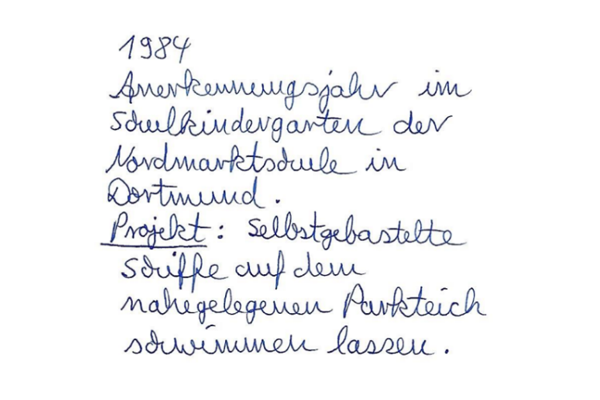 1984
Anerkennungsjahr im
Schulkindergarten der
Nordmarktschule in
Dortmund.
Projekt: Selbstgebastelte
Schiffe auf dem
nahegelegenen Parkteich
schwimmen lassen.